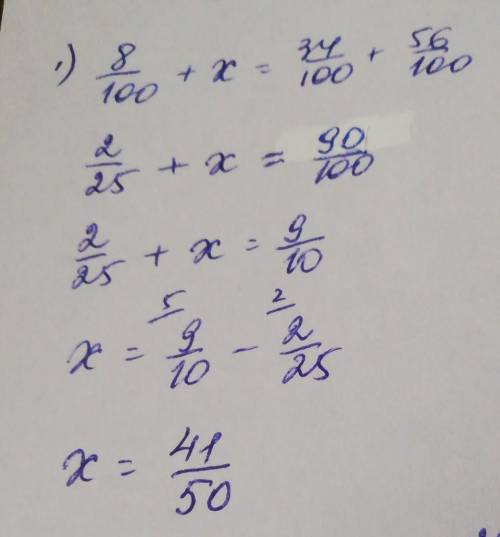 1) 8/100 + x = 34/100 + 56/100
2/25 + x = 90/100
2/25 + x = 9/10
x = 9/10 5 - 2/25 2
x = 41/50